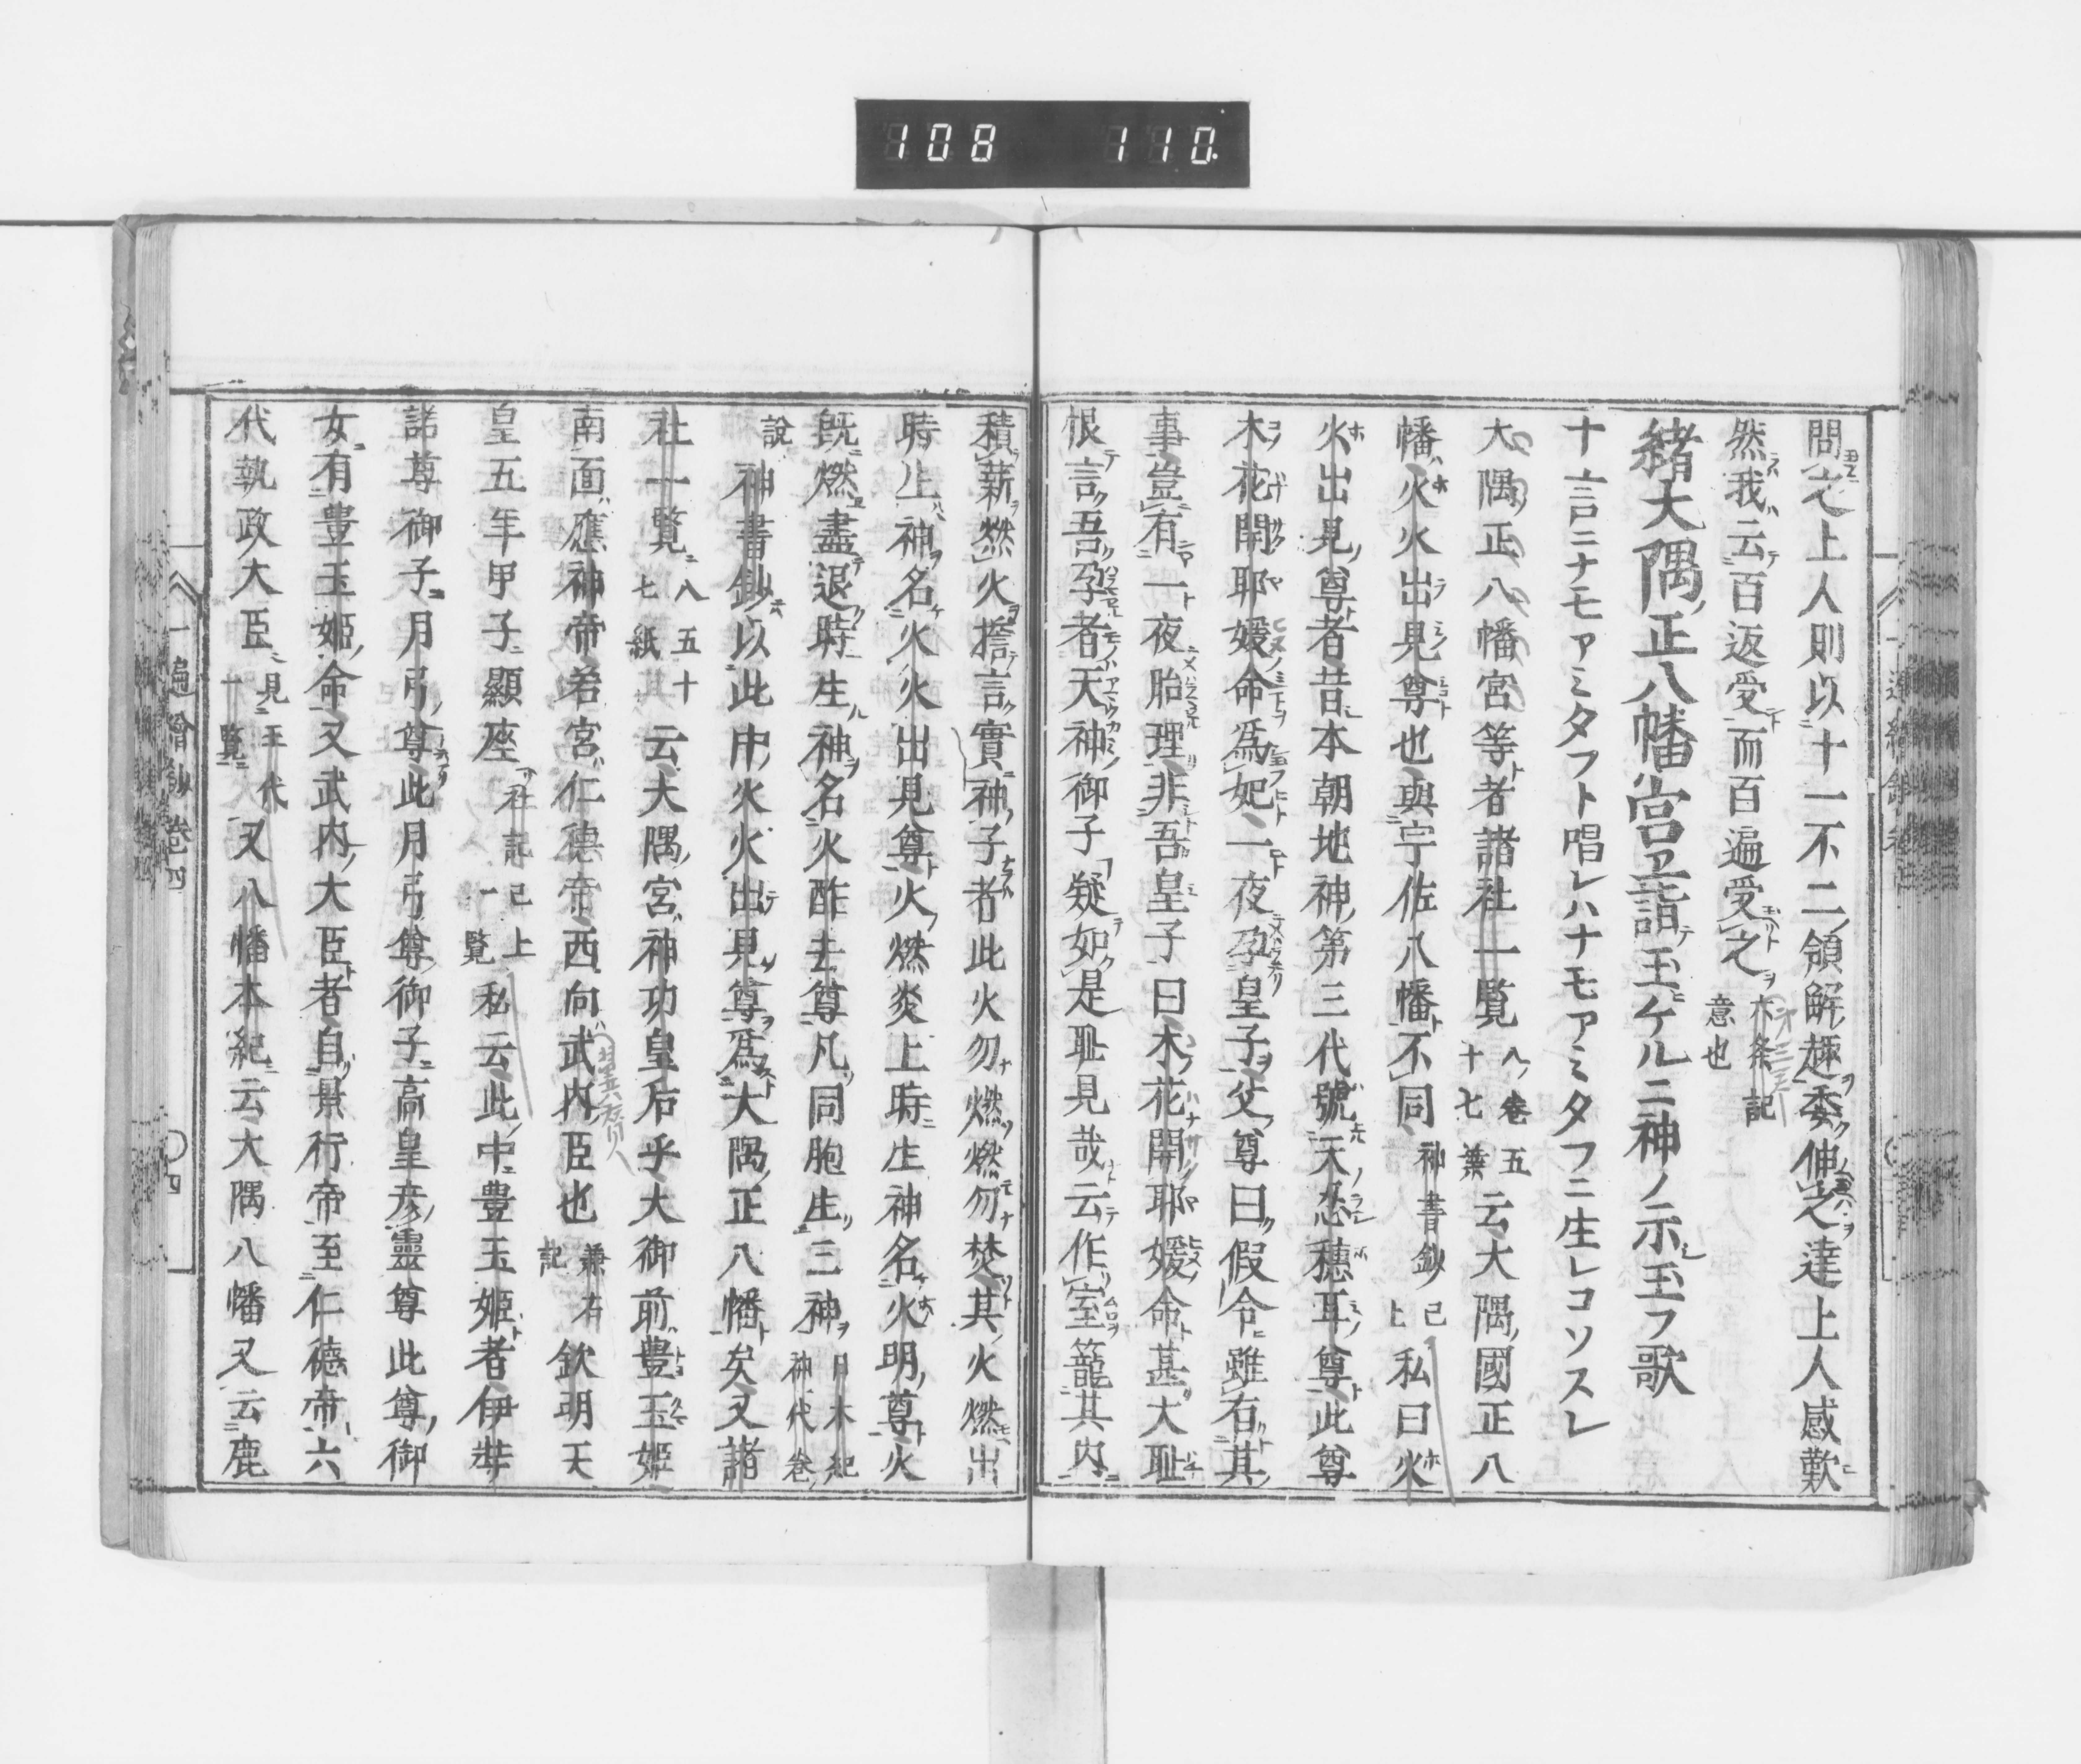 108 110.
問之上人則以十一不二領解趣委伸之達上人感歎
然我云百返受而百遍受之 六条記意也
緒大隅正八幡宮ヱ詣玉ケルニ神ノ示玉フ歌
十言ニナモアミタフト唱レハナモアミタフニ生レコソスレ
大隅正八幡宮等者諸社一覧 八巻五十七葉 云大隅國正八
幡火火出見尊也與宇佐八幡不同 神書鈔 已上 私曰火
火出見尊者昔本朝地神第三代號天忍穗耳尊此尊
木花開耶媛命爲妃一夜孕皇子父尊曰假令雖有其
事豈有一夜胎理非吾皇子曰木花開耶媛命甚大耻
恨言吾孕者天神御子疑如是耻見哉云作室籠其内
積薪燃火誓言實神子者此火勿燃燃勿焚其火燃出
時生神名火火出見尊火燃炎上時生神名火明尊火
既燃盡退時生神名火酢去尊凡同胞生三神 日木紀神代卷
說 神書鈔以此中火火出見尊爲大隅正八幡矣又諸
社一覽 八五十七紙 云大隅宮神功皇后乎大御前豊玉姫
南面應神帝若宮仁德帝西向武内臣也 兼右記 欽明天
皇五年甲子顯座 社記已上一覽 私云此中豊玉姫者伊弉
諾尊御子月弓尊此月弓尊御子高皇彦靈尊此尊御
女有豊玉姫命又武内大臣者自景行帝至仁德帝六
代執政大臣 見王代一覽 又八幡本紀云大隅八幡又云鹿
一遍繪鈔卷四
四